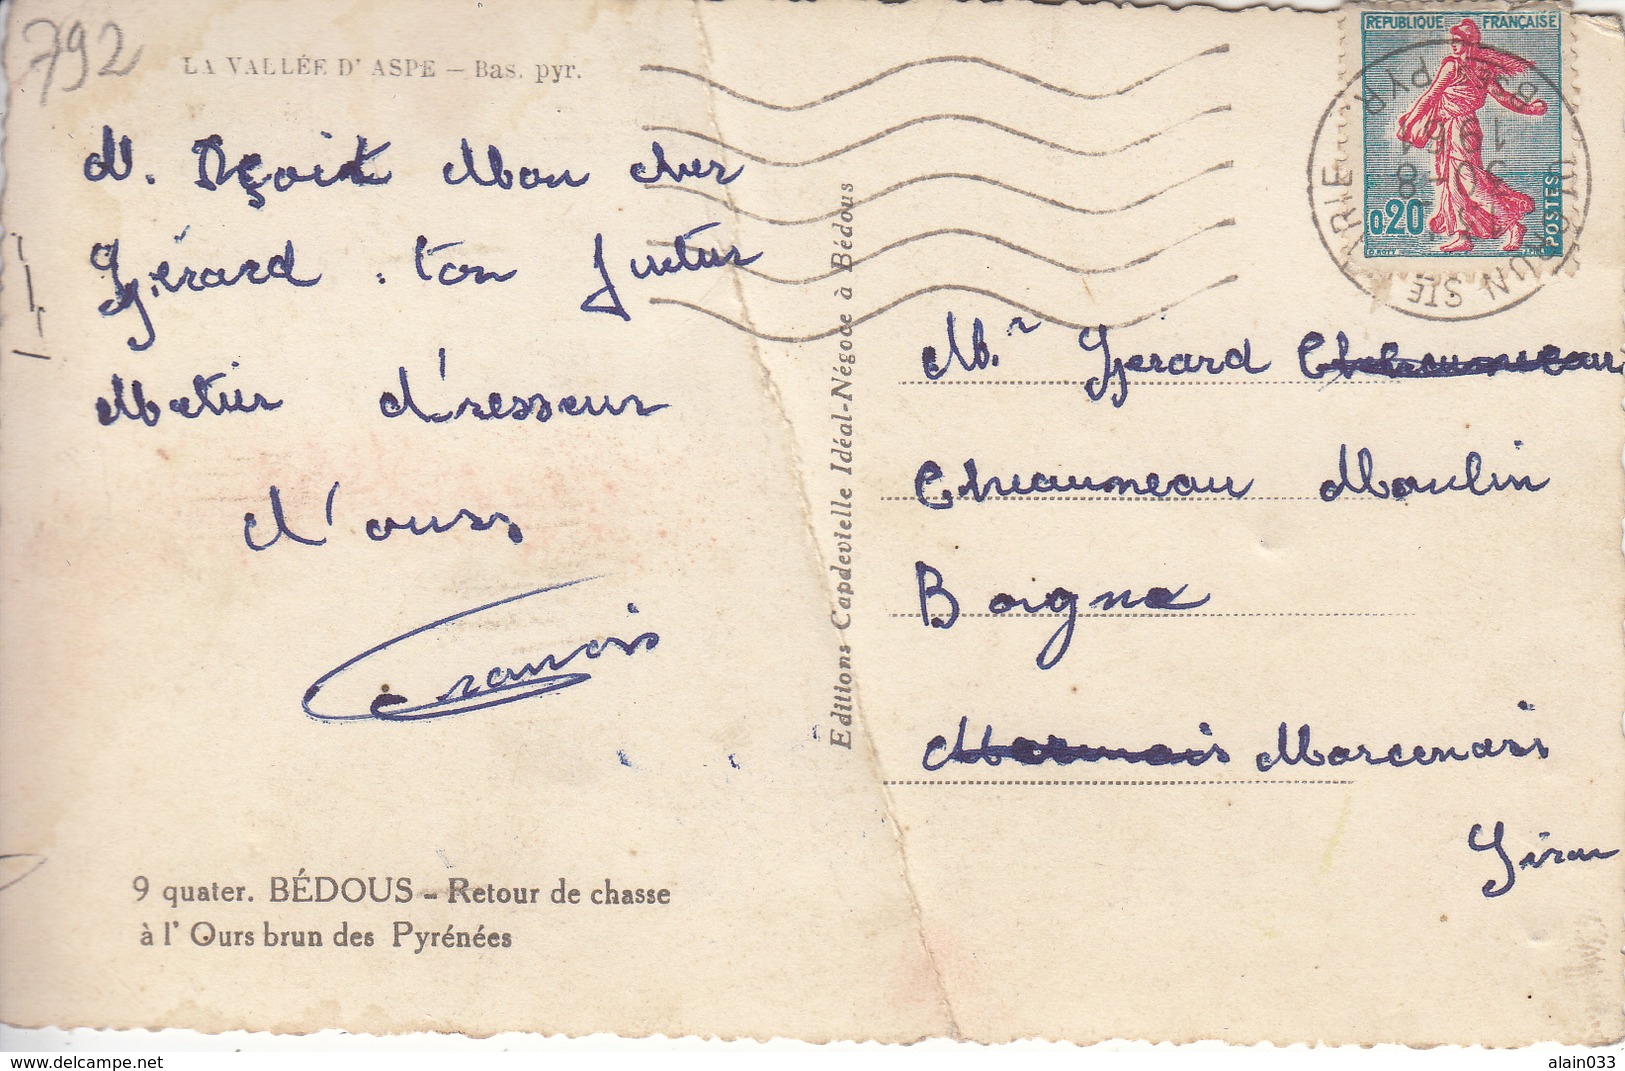 792
LA VALLÉE D' ASPE – Bas. pyr.
Mon cher
Gérard . ton futur
Metier d'resseur
d'ours
Francis
9 quater. BÉDOUS – Retour de chasse
à l' Ours brun des Pyrénées
Editions Capdevielle Idéal-Négoce à Bédous
REPUBLIQUE FRANÇAISE
0,20
POSTES
OLORON STE MARIE
BSES PYR
20 - 8
Mr Gerard
Moulin
Boigne
Marcenais
Giron
alain033
www.delcampe.net